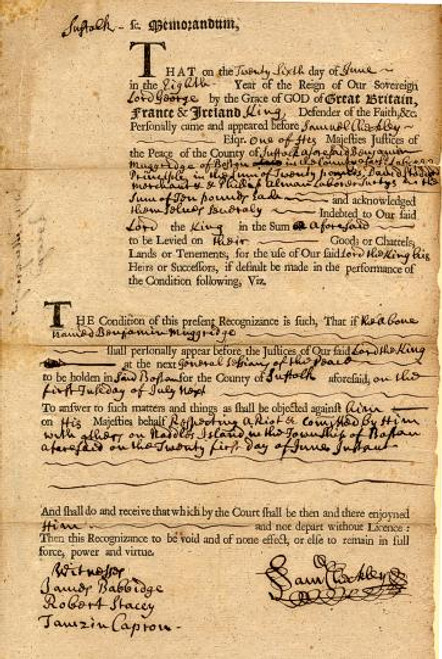 Suffolk - sc. Memorandum,
THAT on the Twenty Sixth day of June
in the Eighth Year of the Reign of Our Sovereign
Lord George by the Grace of GOD of Great Britain,
France & Ireland King, Defender of the Faith, &c.
Personally came and appeared before Samuel Checkley
Esqr. One of His Majesties Justices of
the Peace of the County of Suffolk aforesaid Benjamin
Muggridge of Boston in the County aforesaid
Principle in the Sum of Twenty pounds, David
Merchant & Philip Laborer Suretys in the
Sum of Ten pounds Each and acknowledged
themselves severaly Indebted to Our said
Lord the King in the Sum Aforesaid
to be Levied on their Goods or Chattels,
Lands or Tenements, for the use of Our said Lord the King his
Heirs or Successors, if default be made in the performance of
the Condition following, Viz.
THE Condition of this present Recognizance is such, That if the above
named Benjamin Muggridge
shall personally appear before the Justices of Our said Lord the King
at the next General Sessions of the Peace
to be holden in Said Boston for the County of Suffolk aforesaid, on the
first Tuesday of July Next
To answer to such matters and things as shall be objected against him
on His Majesties behalf Respecting A Riot Comitted by Him
with others on Noddles Island in the Township of Boston
aforesaid on the Twenty first day of June Instant
And shall do and receive that which by the Court shall be then and there enjoyned
Him and not depart without Licence:
Then this Recognizance to be void and of none effect, or else to remain in full
force, power and virtue.
Witnesses
James Babbidge
Robert Stacey
Tamzin Capron
Sam Checkley